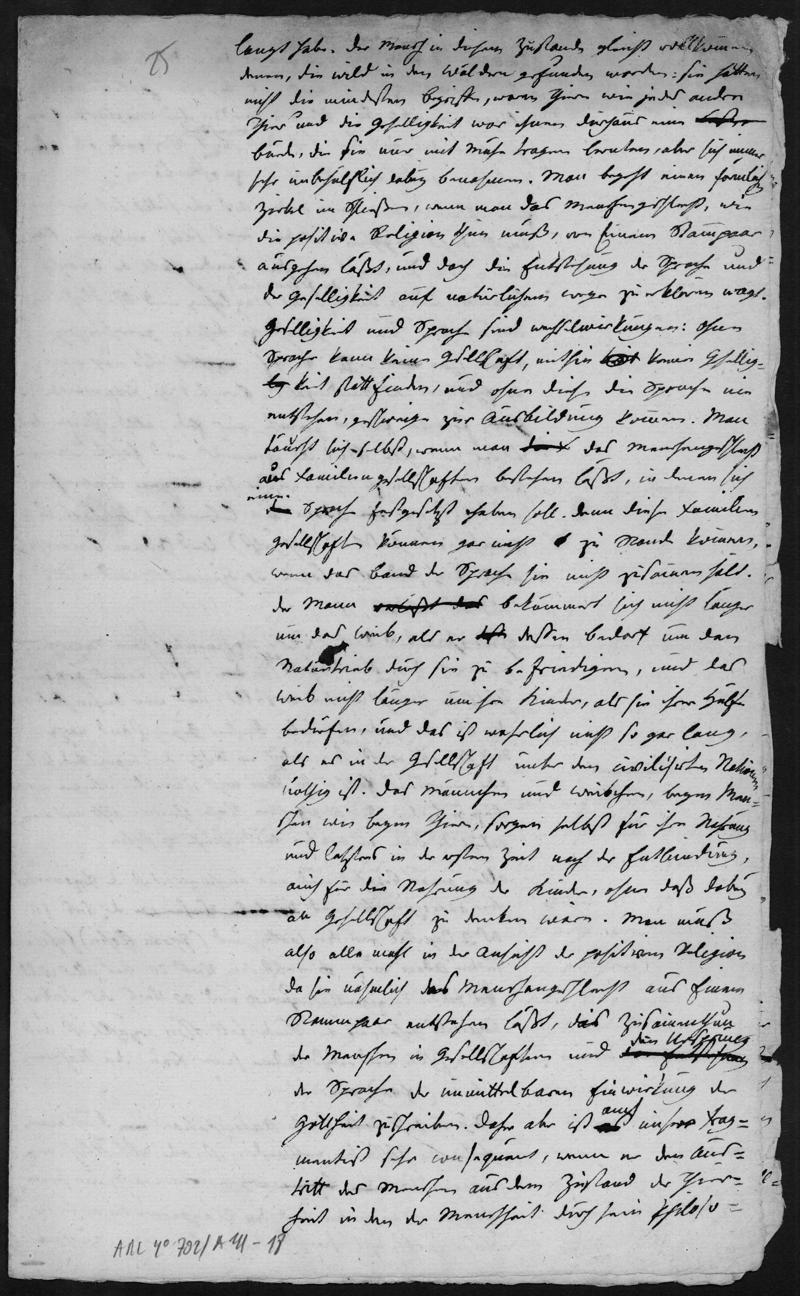 25
langt habe. der Mensch in diesem Zustande gleicht vollkommen
denen, die wild in den Wäldern gefunden worden: sie hatten
nicht die mindesten begriffe, waren Thiere wie jedes andre
Thier und die Geselligkeit war ihnen durchaus eine
bürde, die sie nur mit Mühe tragen lernten, aber sich immer
sehr unbehülflich dabey benahmen. Man begeht einen förmlichen
Zirkel im Schließen, wenn man das Menschengeschlecht, wie
die positive Religion thun muß, von Einem Stammpaar
ausgehen läßt, und doch die Entstehung der Sprache und
der Geselligkeit auf natürlichem wege zu erklären wagt.
Geselligkeit und Sprache sind wechselwirkungen: ohne
Sprache kann keine Gesellschaft, mithin keine Gesellig-
keit statt finden, und ohne diese die Sprache nie
entstehen, geschweige zur Ausbildung kommen. Man
täuscht sich selbst, wenn man das Menschengeschlecht
aus Familiengesellschaften bestehen läßt, in denen sich
eine Sprache festgesetzt haben soll. denn diese Familien
gesellschaften können gar nicht zu Stande kommen,
wenn das band der Sprache sie nicht zusammen hält.
der Mann bekümmert sich nicht länger
um das weib, als er dessen bedarf um den
Naturtrieb durch sie zu befriedigen, und das
weib nicht länger um ihre Kinder, als sie ihrer Hülfe
bedürfen, und das ist wahrlich nicht so gar lang,
als es in der Gesellschaft unter den civilisirten Nationen
nöthig ist. das Männchen und weibchen, beym Men-
schen wie beym Thiere, sorgen selbst für ihre Nahrung
und letzteres in der ersten Zeit nach der Entbindung,
auch für die Nahrung der Kinder, ohne daß dabey
an Gesellschaft zu denken wäre. Man muß
also allemahl in der Ansicht der positiven Religion
da sie nähmlich das Menschengeschlecht aus Einem
Stammpaar entstehen läßt, das Zusammenthun
der Menschen in Gesellschaften und den Ursprung
der Sprache der unmittelbaren Einwirkung der
Gottheit zuschreiben. daher aber ist auch unser Frag-
mentist sehr consequent, wenn er den Aus-
tritt des Menschen aus dem Zustand der Thier-
heit in den der Menschheit durch sein philoso-
ARL 4° 702/A III - 17